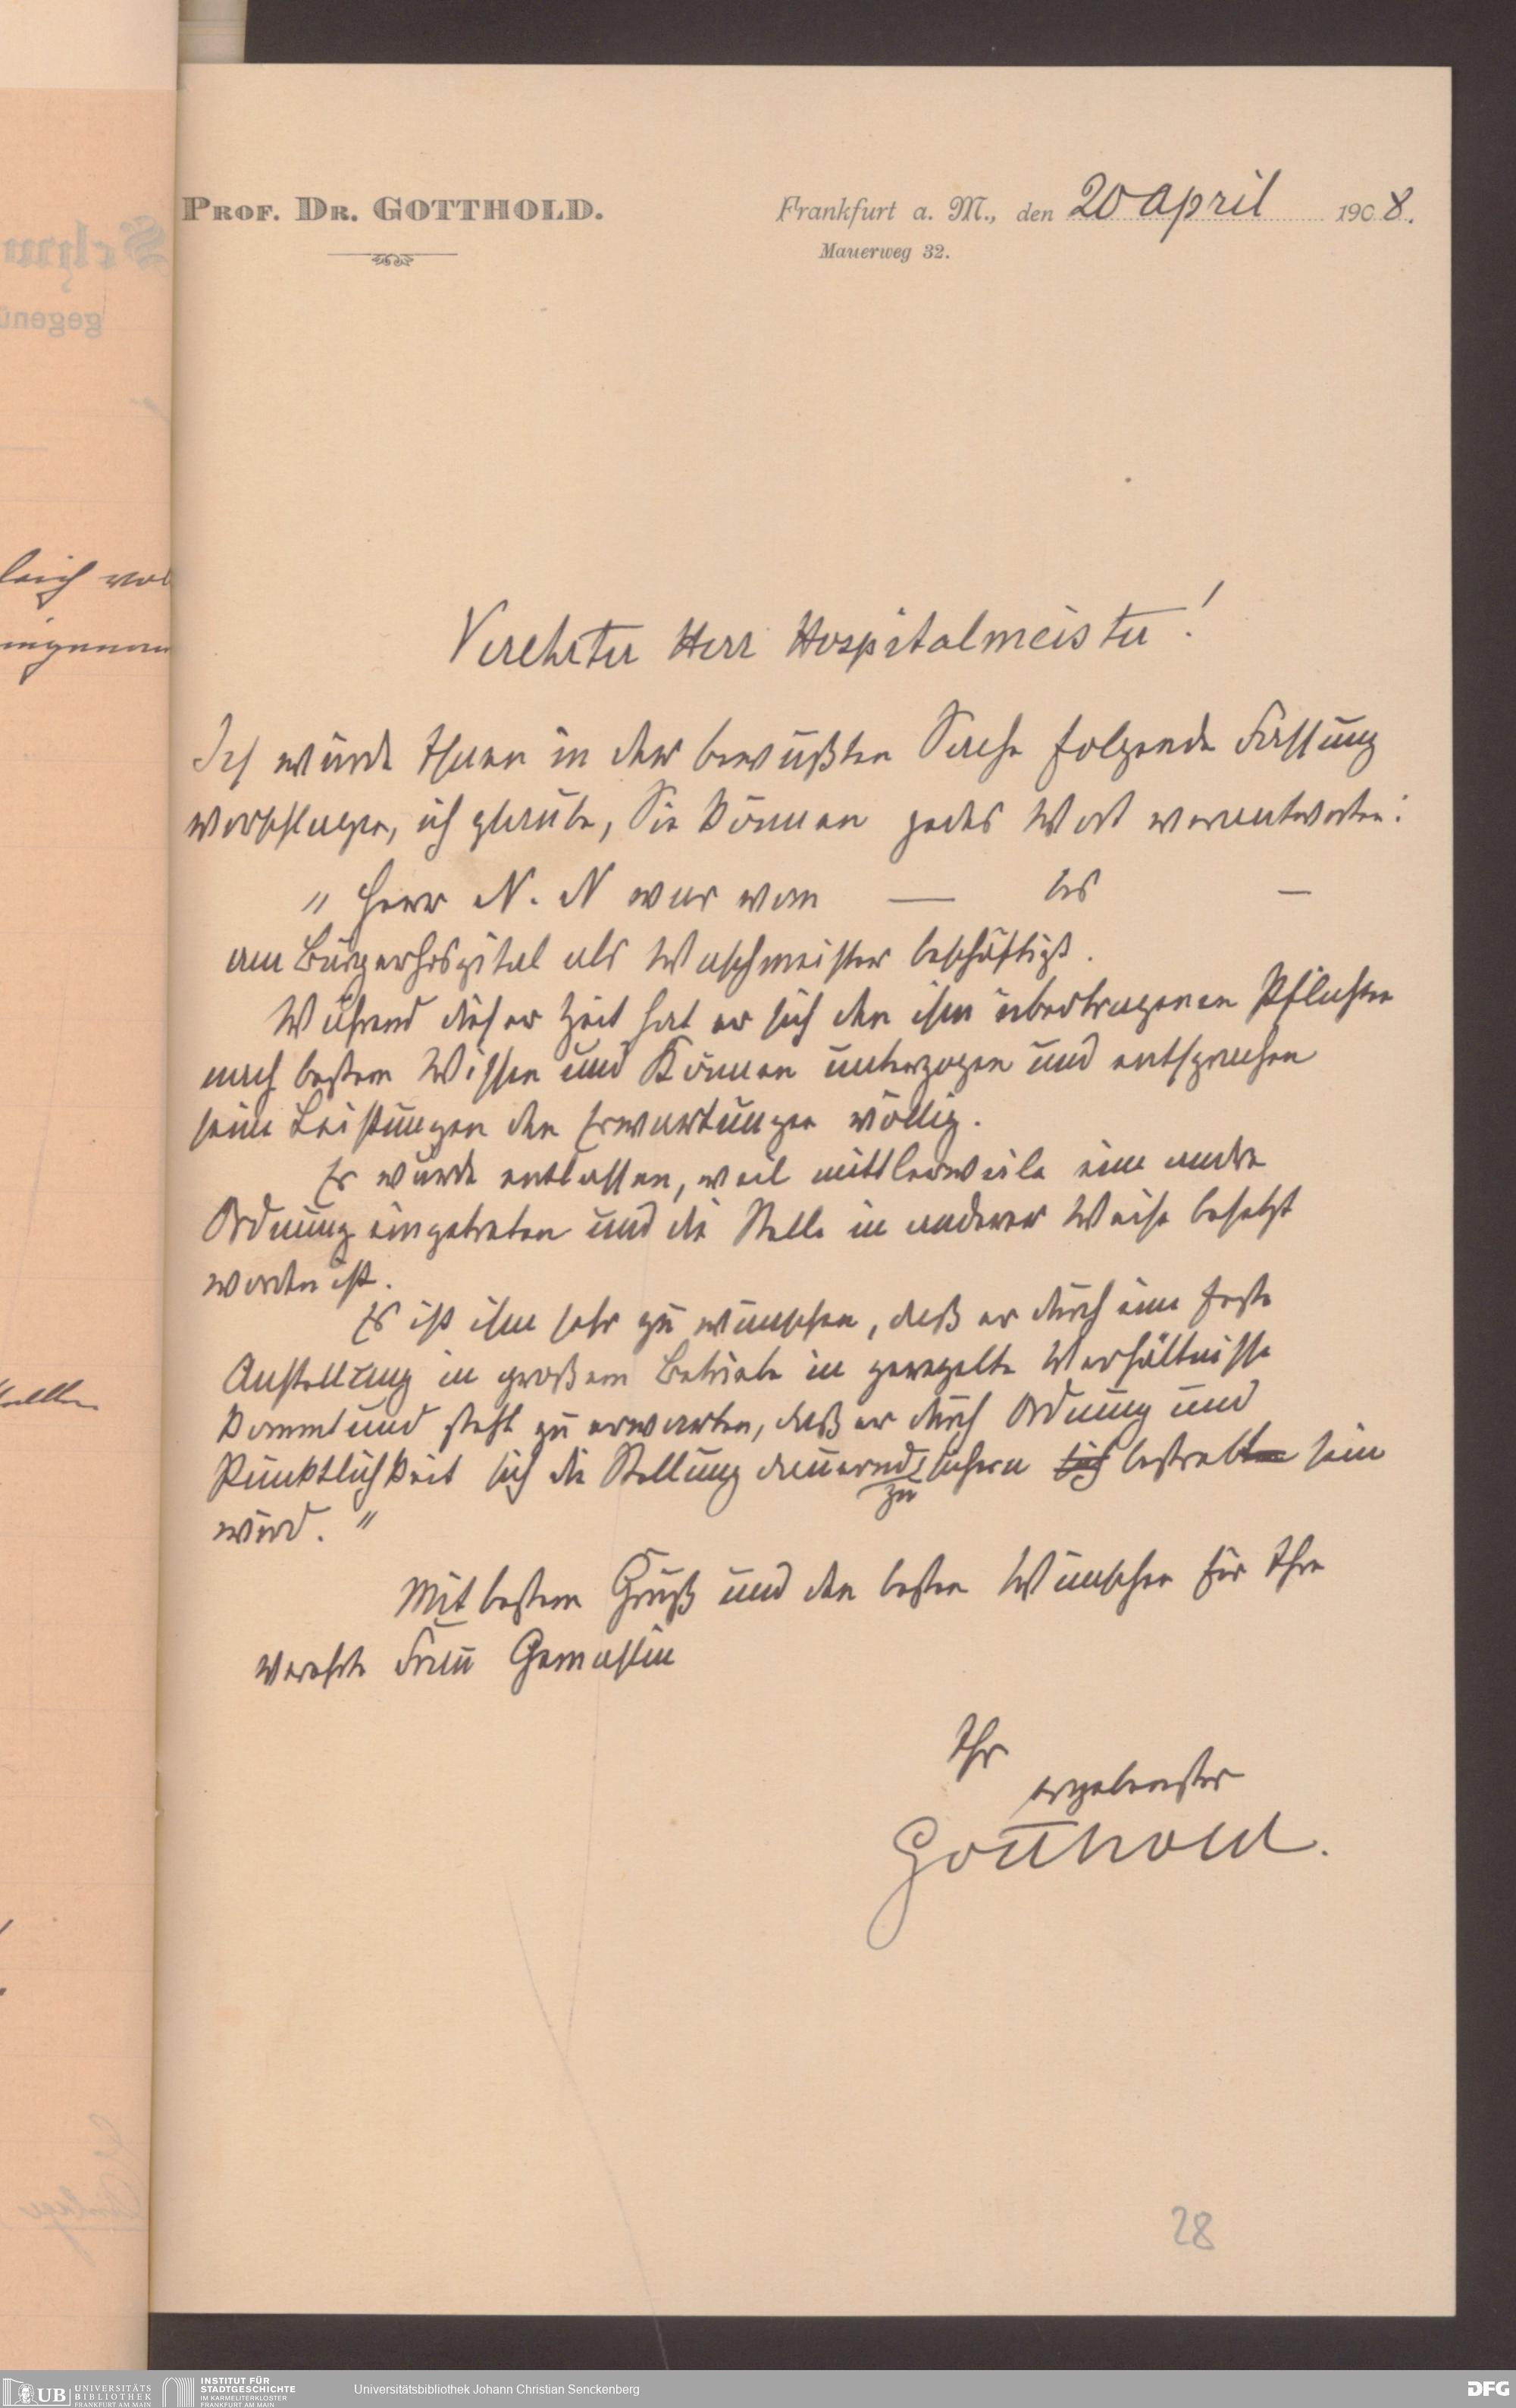 PROF. DR. GOTTHOLD.
Frankfurt a. M., den 20 april 1908.
Mauerweg 32.
Verehrter Herr Hospitalmeister!
Ich würde Ihnen in der bewußten Sache folgende Fassung
vorschlagen, ich glaube, Sie können jedes Wort verantworten:
"Herr N. N war vom — bis —
am Bürgerhospital als Waschmeister beschäftigt.
Während dieser Zeit hat er sich den ihm übertragenen Pflichten
nach bestem Wissen und Können unterzogen und entsprachen
seine Leistungen den Erwartungen völlig.
Er wurde entlassen, weil mittlerweile eine andre
Ordnung eingetreten und die Stelle in anderer Weise besetzt
worden ist.
Es ist ihm sehr zu wünschen, daß er durch eine feste
Anstellung in großem Betriebe in geregelte Verhältnisse
kommt und steht zu erwarten, daß er durch Ordnung und
Pünktlichkeit sich die Stellung dauernd zu sichern sich bestrebt sein
wird."
Mit bestem Gruß und den besten Wünschen für Ihre
verehrte Frau Gemahlin
Ihr
ergebenster
Gotthold.
28
leich
gegenü
UB UNIVERSITÄTS
BIBLIOTHEK
FRANKFURT AM MAIN
INSTITUT FÜR
STADTGESCHICHTE
IM KARMELITERKLOSTER
FRANKFURT AM MAIN
Universitätsbibliothek Johann Christian Senckenberg
DFG